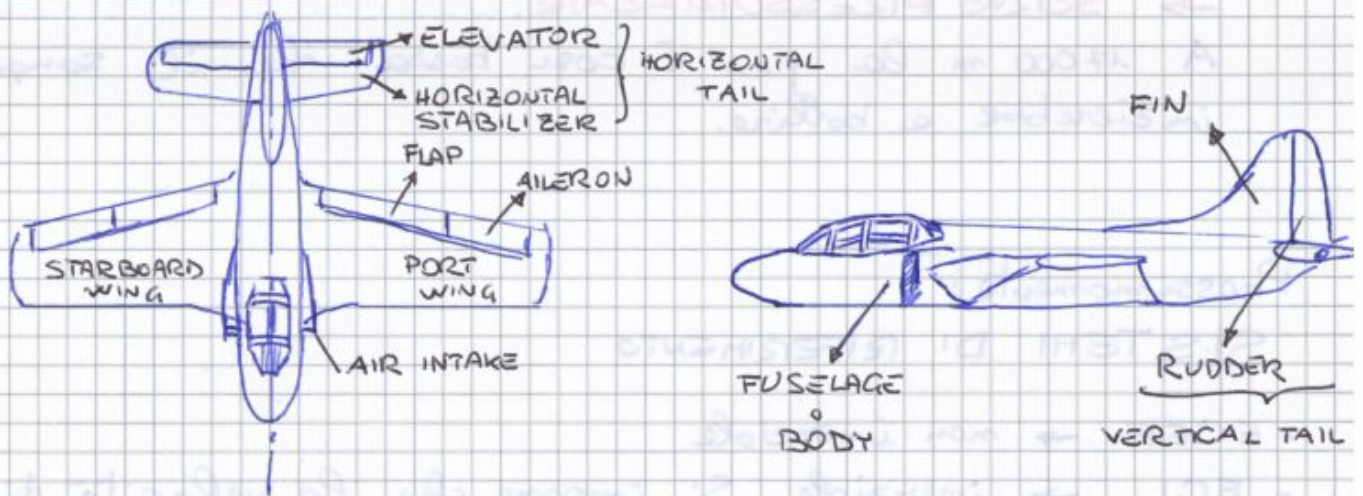 ELEVATOR
HORIZONTAL
STABILIZER
HORIZONTAL
TAIL
FLAP
AILERON
STARBOARD
WING
PORT
WING
AIR INTAKE
FIN
FUSELAGE
o
BODY
RUDDER
VERTICAL TAIL